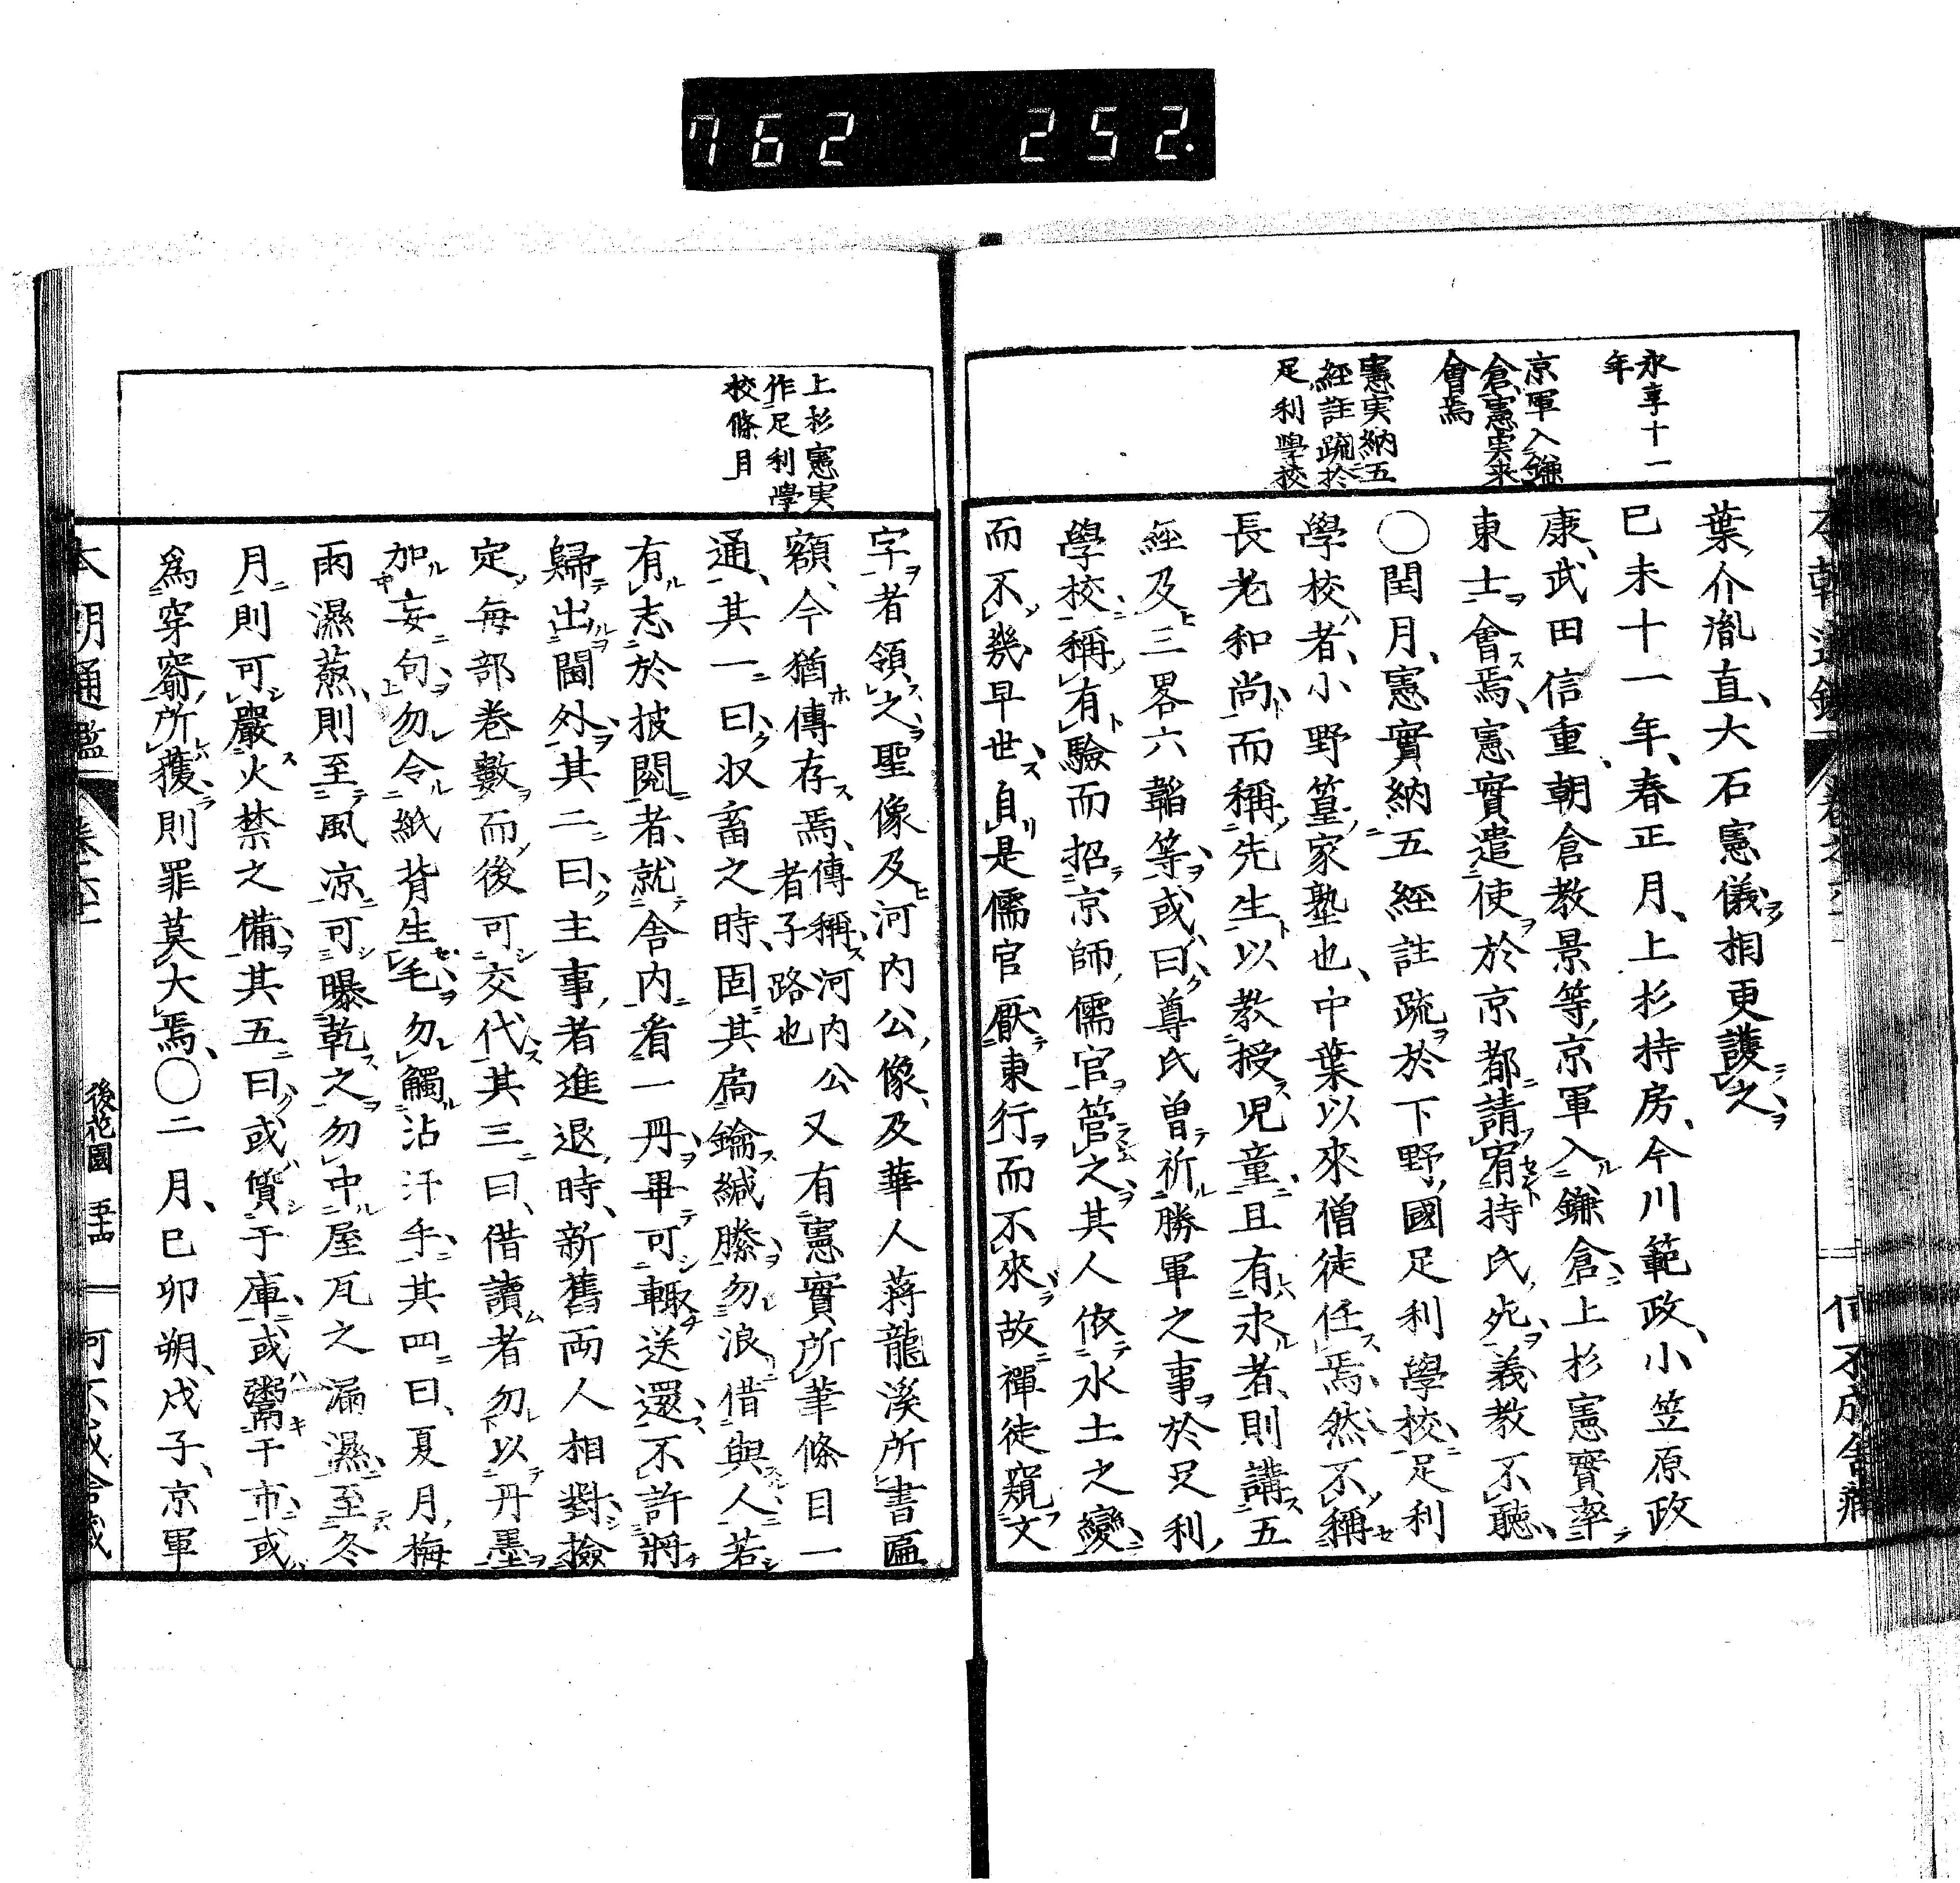 762 252.
永享十一
年
京軍入鎌
倉憲実来
會焉
憲実納五
經註疏於
足利學校
葉介胤直、大石憲儀相更護之
己未十一年、春正月、上杉持房、今川範政、小笠原政
康、武田信重、朝倉教景等、京軍入鎌倉、上杉憲實率
東士會焉、憲實遣使於京都請宥持氏死、義教不聽
〇閏月、憲實納五經註疏於下野國足利學校、足利
學校者、小野篁家塾也、中葉以來僧徒任焉、然不稱
長老和尚、而稱先生、以教授児童、且有求者、則講五
經及三畧六韜等、或曰、尊氏曽祈勝軍之事於足利
學校、稱有驗而招京師儒官管之、其人依水土之變
而不幾早世、自是儒官厭東行而不來、故禪徒窺文
上杉憲実
作足利學
校條目
字者領之、聖像及河内公像、及華人蔣龍溪所書匾
額、今猶傳存焉、傳稱河内公者子路也又有憲實所筆條目一
通、其一曰、収畜之時、固其扃鑰緘縢、勿浪借與人、若
有志於披閲者、就舎内看一冊畢、可輙送還、不許將
歸出閫外、其二曰、主事者進退時、新舊両人相對撿
定、毎部巻數而後可交代、其三曰、借讀者勿以丹墨
加妄句、勿令紙背生毛、勿觸沾汗手、其四曰、夏月梅
雨濕蒸、則至風凉可曝乾之、勿中屋瓦之漏濕、至冬
月則可嚴火禁之備、其五曰、或質于庫、或鬻于市、或
為穿窬所獲、則罪莫大焉、〇二月、己卯朔、戊子、京軍
本朝通鑑
後花園 五十四